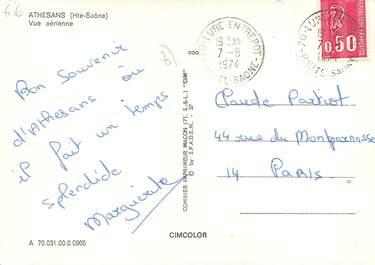 66
ATHESANS (Hte-Saône)
Vue aérienne
Bon Souvenir
d'Athesans où
il fait un temps
splendide
Marguerite
A 70.031.00.0.0965
COMBIER IMPRIMEUR MACON (71. S.-&-L.) "CIM"
© by S.P.A.D.E.M. 37
CIMCOLOR
70-LURE-ENTREPOT
7-8
1974
HAUTE-SAONE
70-LURE
HAUTE SAONE
0,50
Claude Partiot
44 rue du Montparnasse
14 PARIS